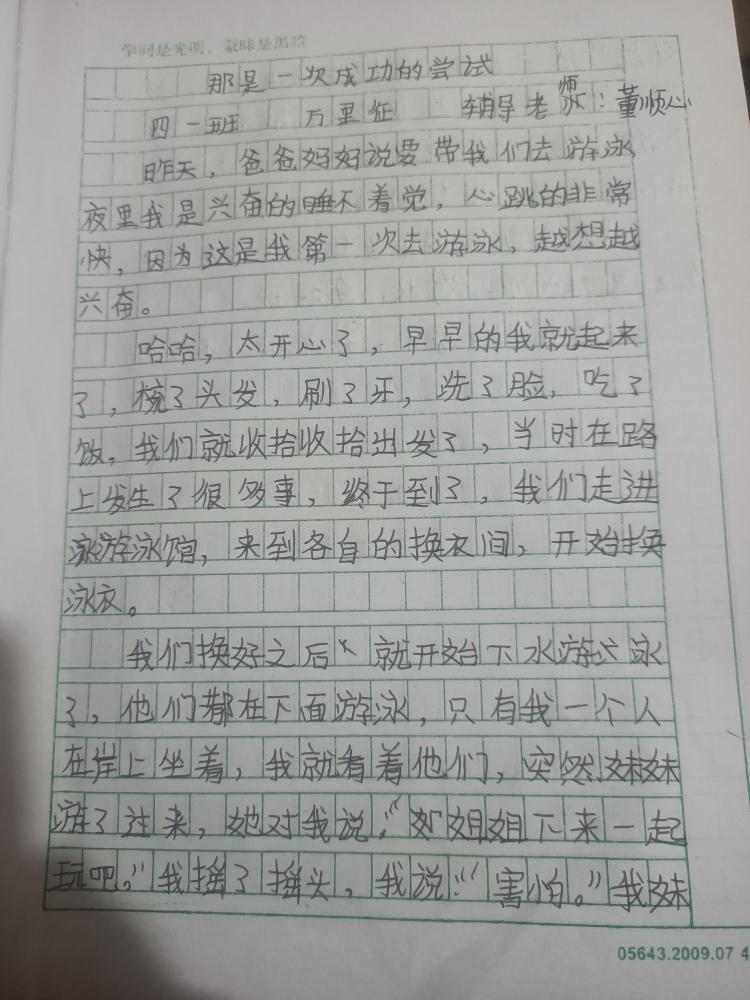 学问是光明，蒙昧是黑暗
那是一次成功的尝试
四一班 万里征 辅导老师：董顺心
昨天，爸爸妈妈说要带我们去游泳
夜里我是兴奋的睡不着觉，心跳的非常
快，因为这是我第一次去游泳，越想越
兴奋。
哈哈，太开心了，早早的我就起来
了，梳了头发，刷了牙，洗了脸，吃了
饭，我们就收拾收拾出发了，当时在路
上发生了很多事，终于到了，我们走进
泳游泳馆，来到各自的换衣间，开始换
泳衣。
我们换好之后，就开始下水游泳
了，他们都在下面游泳，只有我一个人
在岸上坐着，我就看着他们，突然妹妹
游了过来，她对我说，“姐姐下来一起
玩吧。”我摇了摇头，我说：“害怕。”我妹
05643.2009.07 4